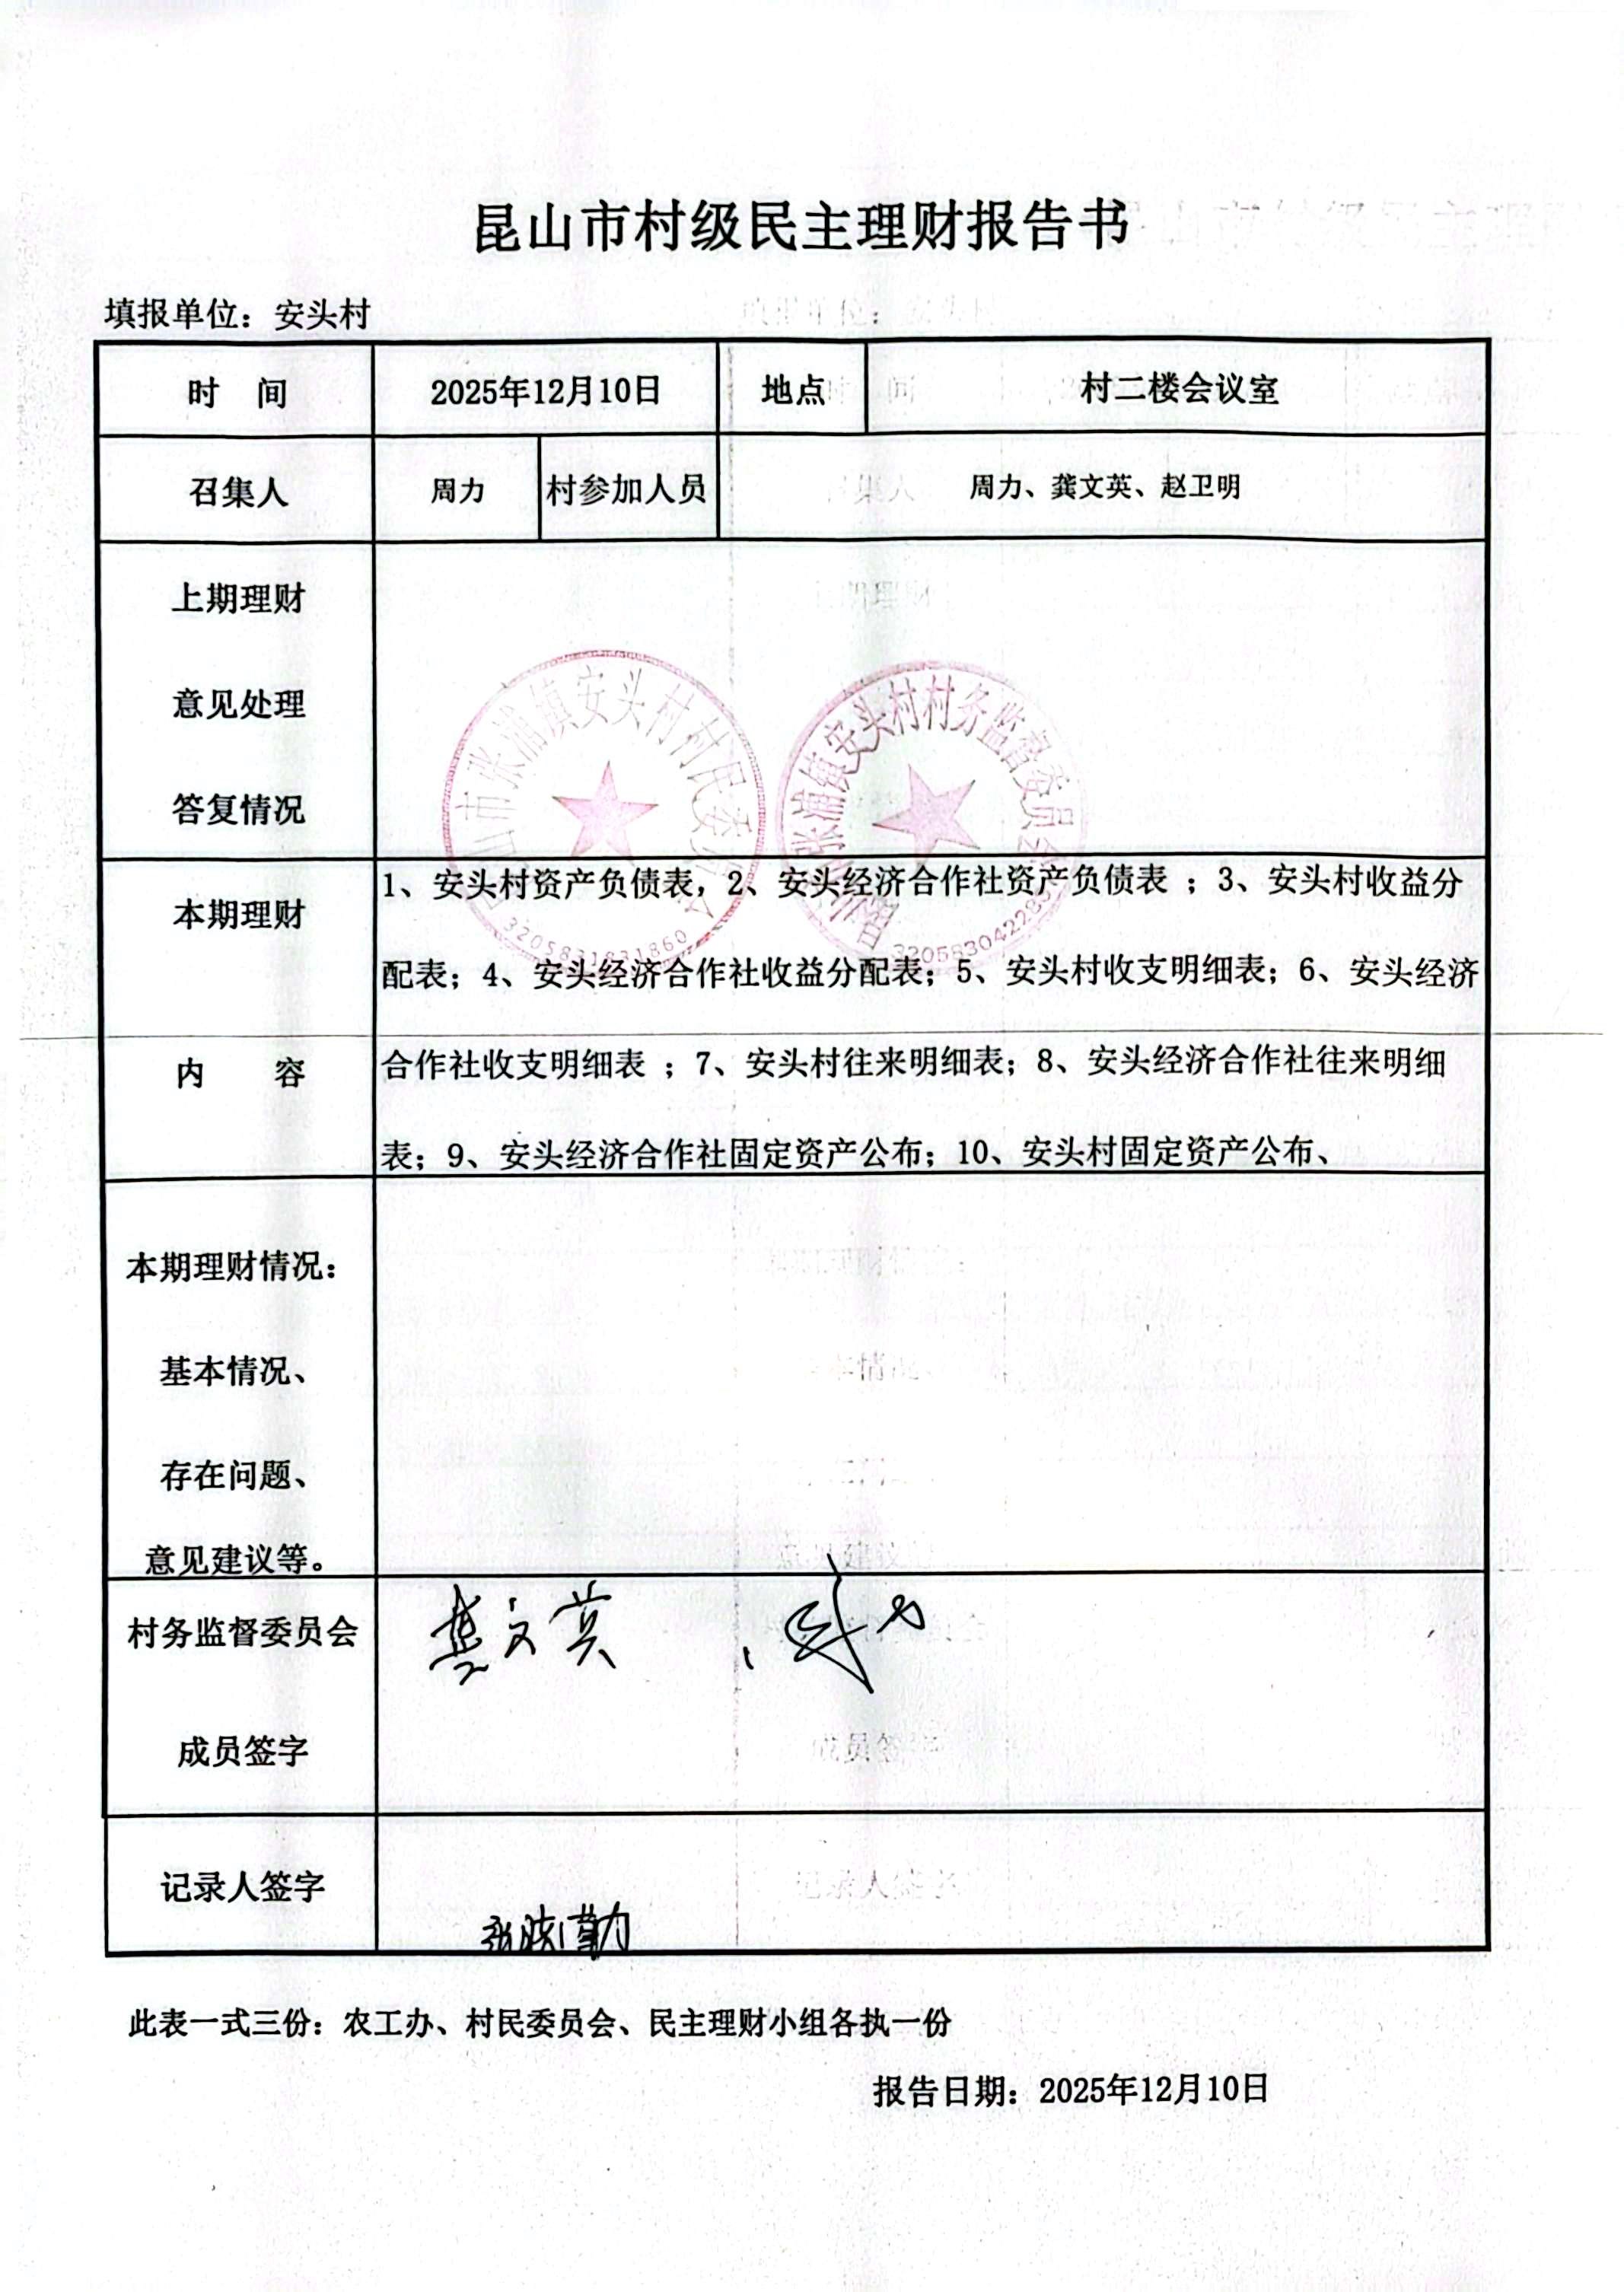 昆山市村级民主理财报告书
填报单位：安头村
时 间 2025年12月10日 地点 村二楼会议室
召集人 周力 村参加人员 周力、龚文英、赵卫明
上期理财
意见处理
答复情况
昆山市张浦镇安头村村民委员会
3205831831860
昆山市张浦镇安头村村务监督委员会
本期理财
内 容
1、安头村资产负债表，2、安头经济合作社资产负债表 ；3、安头村收益分
配表；4、安头经济合作社收益分配表；5、安头村收支明细表；6、安头经济
合作社收支明细表 ；7、安头村往来明细表；8、安头经济合作社往来明细
表；9、安头经济合作社固定资产公布；10、安头村固定资产公布、
本期理财情况：
基本情况、
存在问题、
意见建议等。
村务监督委员会
成员签字
龚文英 、周力
记录人签字
此表一式三份：农工办、村民委员会、民主理财小组各执一份
报告日期：2025年12月10日